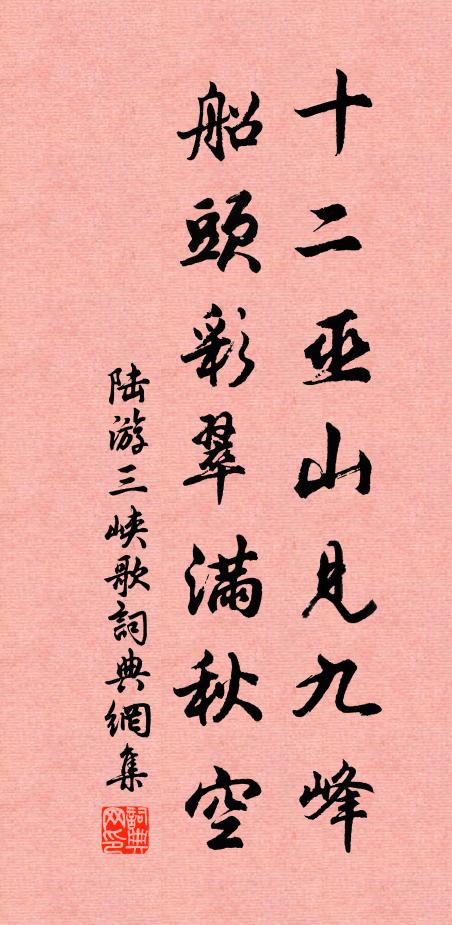 十二巫山見九峰
船頭彩翠滿秋空
陆游三峡歌詞典網集
詞典网印